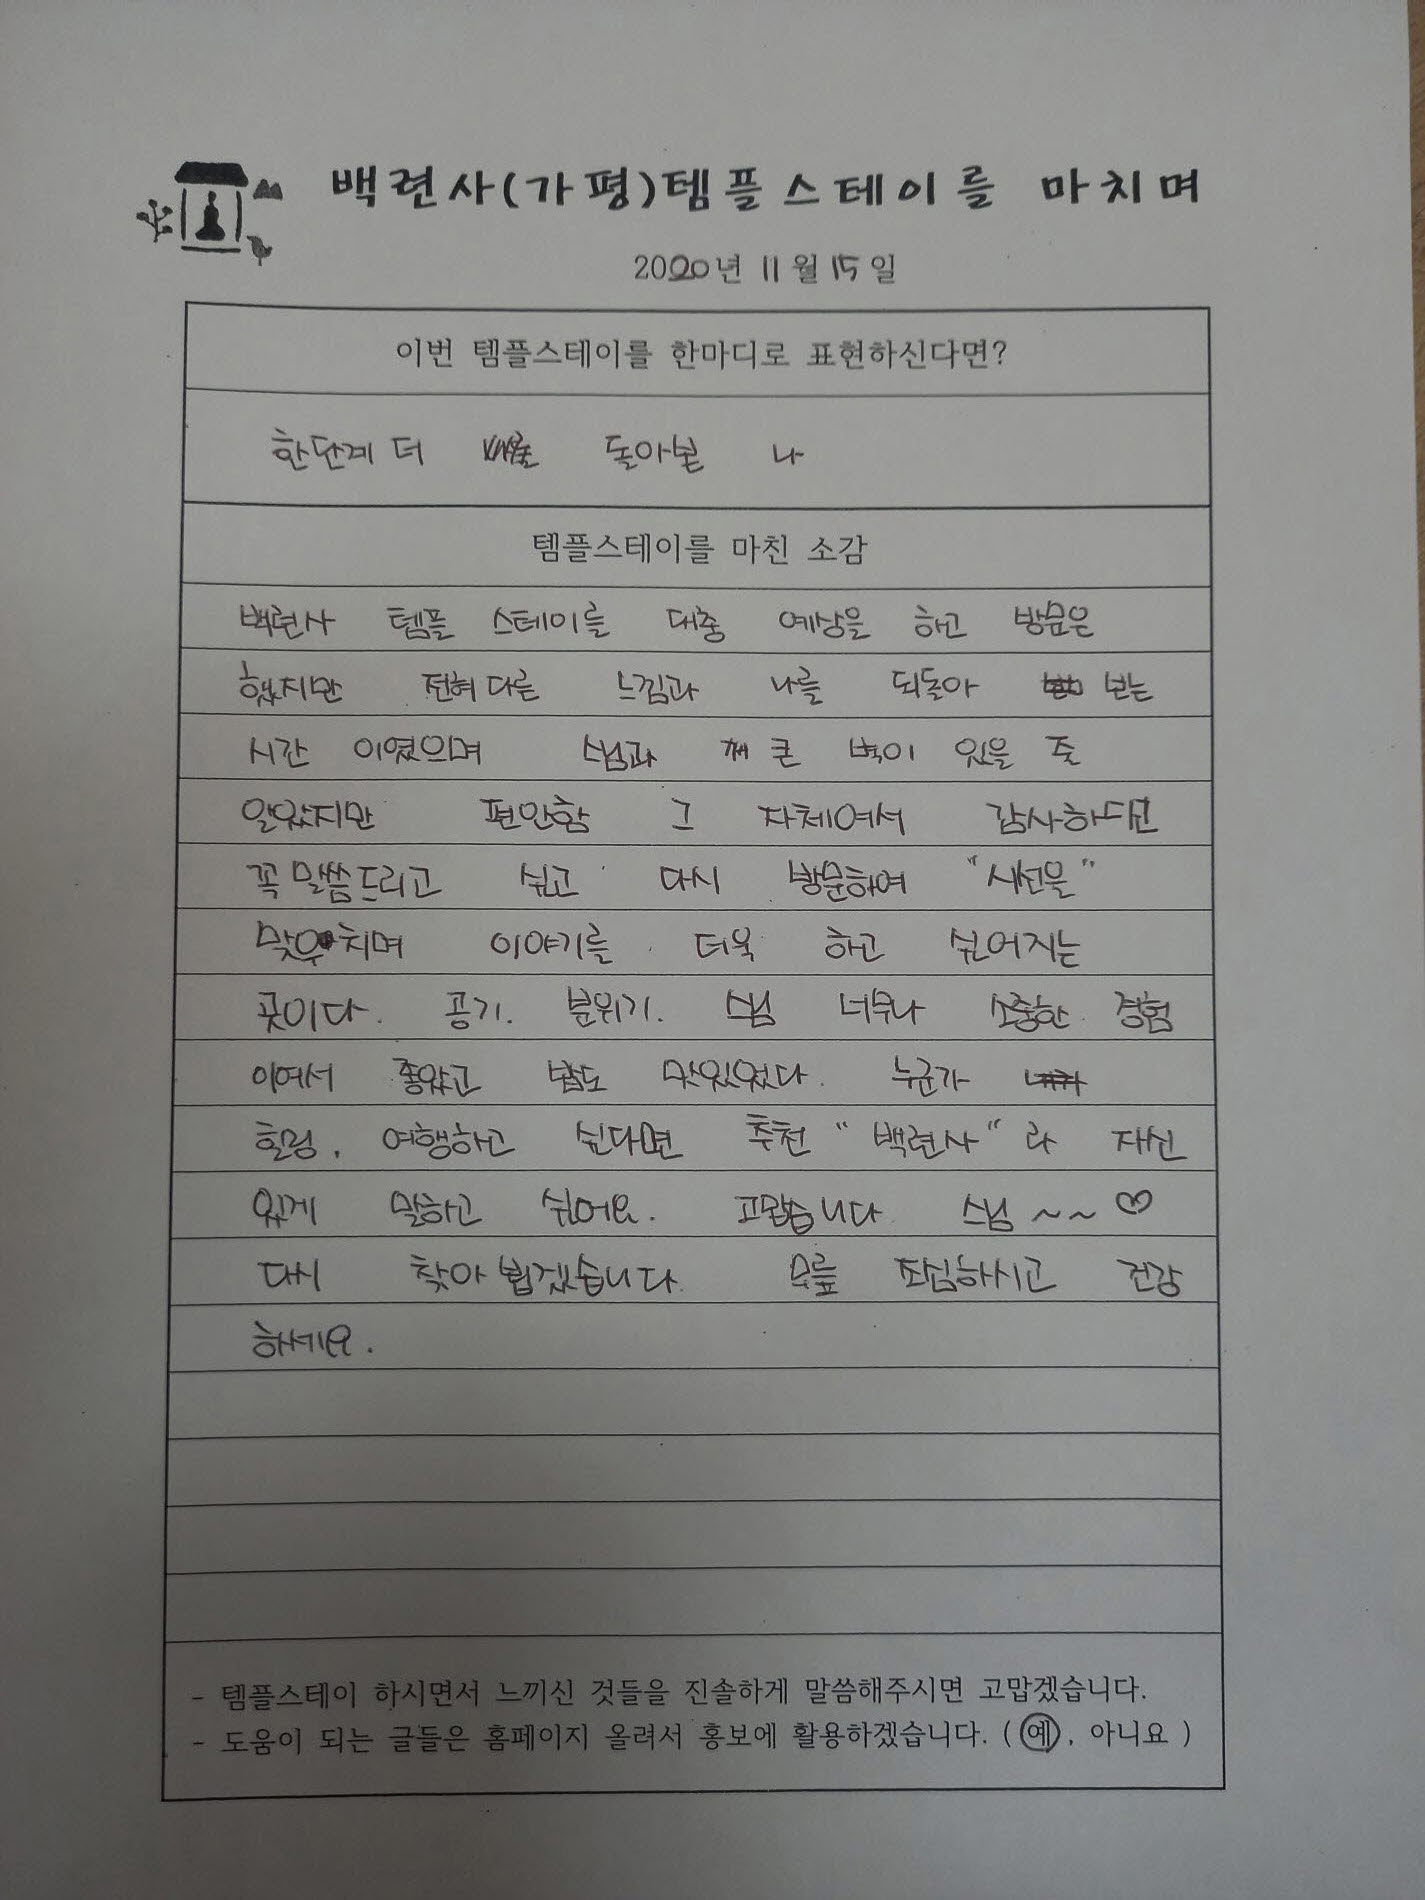 백련사(가평)템플스테이를 마치며
2020년 11월 15일
이번 템플스테이를 한마디로 표현하신다면?
한단계 더 돌아본 나
템플스테이를 마친 소감
백련사 템플 스테이를 대충 예상을 하고 방문은
했지만 전혀다른 느낌과 나를 되돌아 보는
시간 이였으며 스님과 큰 벽이 있을 줄
알았지만 편안함 그 자체여서 감사하다고
꼭 말씀드리고 싶고 다시 방문하여 "시선을"
맞우치며 이야기를 더욱 하고 싶어지는
곳이다. 공기. 분위기. 스님 너무나 소중한 경험
이여서 좋았고 밥도 맛있었다. 누군가
힐링, 여행하고 싶다면 추천 "백련사" 라 자신
있게 말하고 싶어요. 고맙습니다 스님 ~~ ♡
다시 찾아 뵙겠습니다. 무릎 조심하시고 건강
하세요.
- 템플스테이 하시면서 느끼신 것들을 진솔하게 말씀해주시면 고맙겠습니다.
- 도움이 되는 글들은 홈페이지 올려서 홍보에 활용하겠습니다. ( 예, 아니요 )